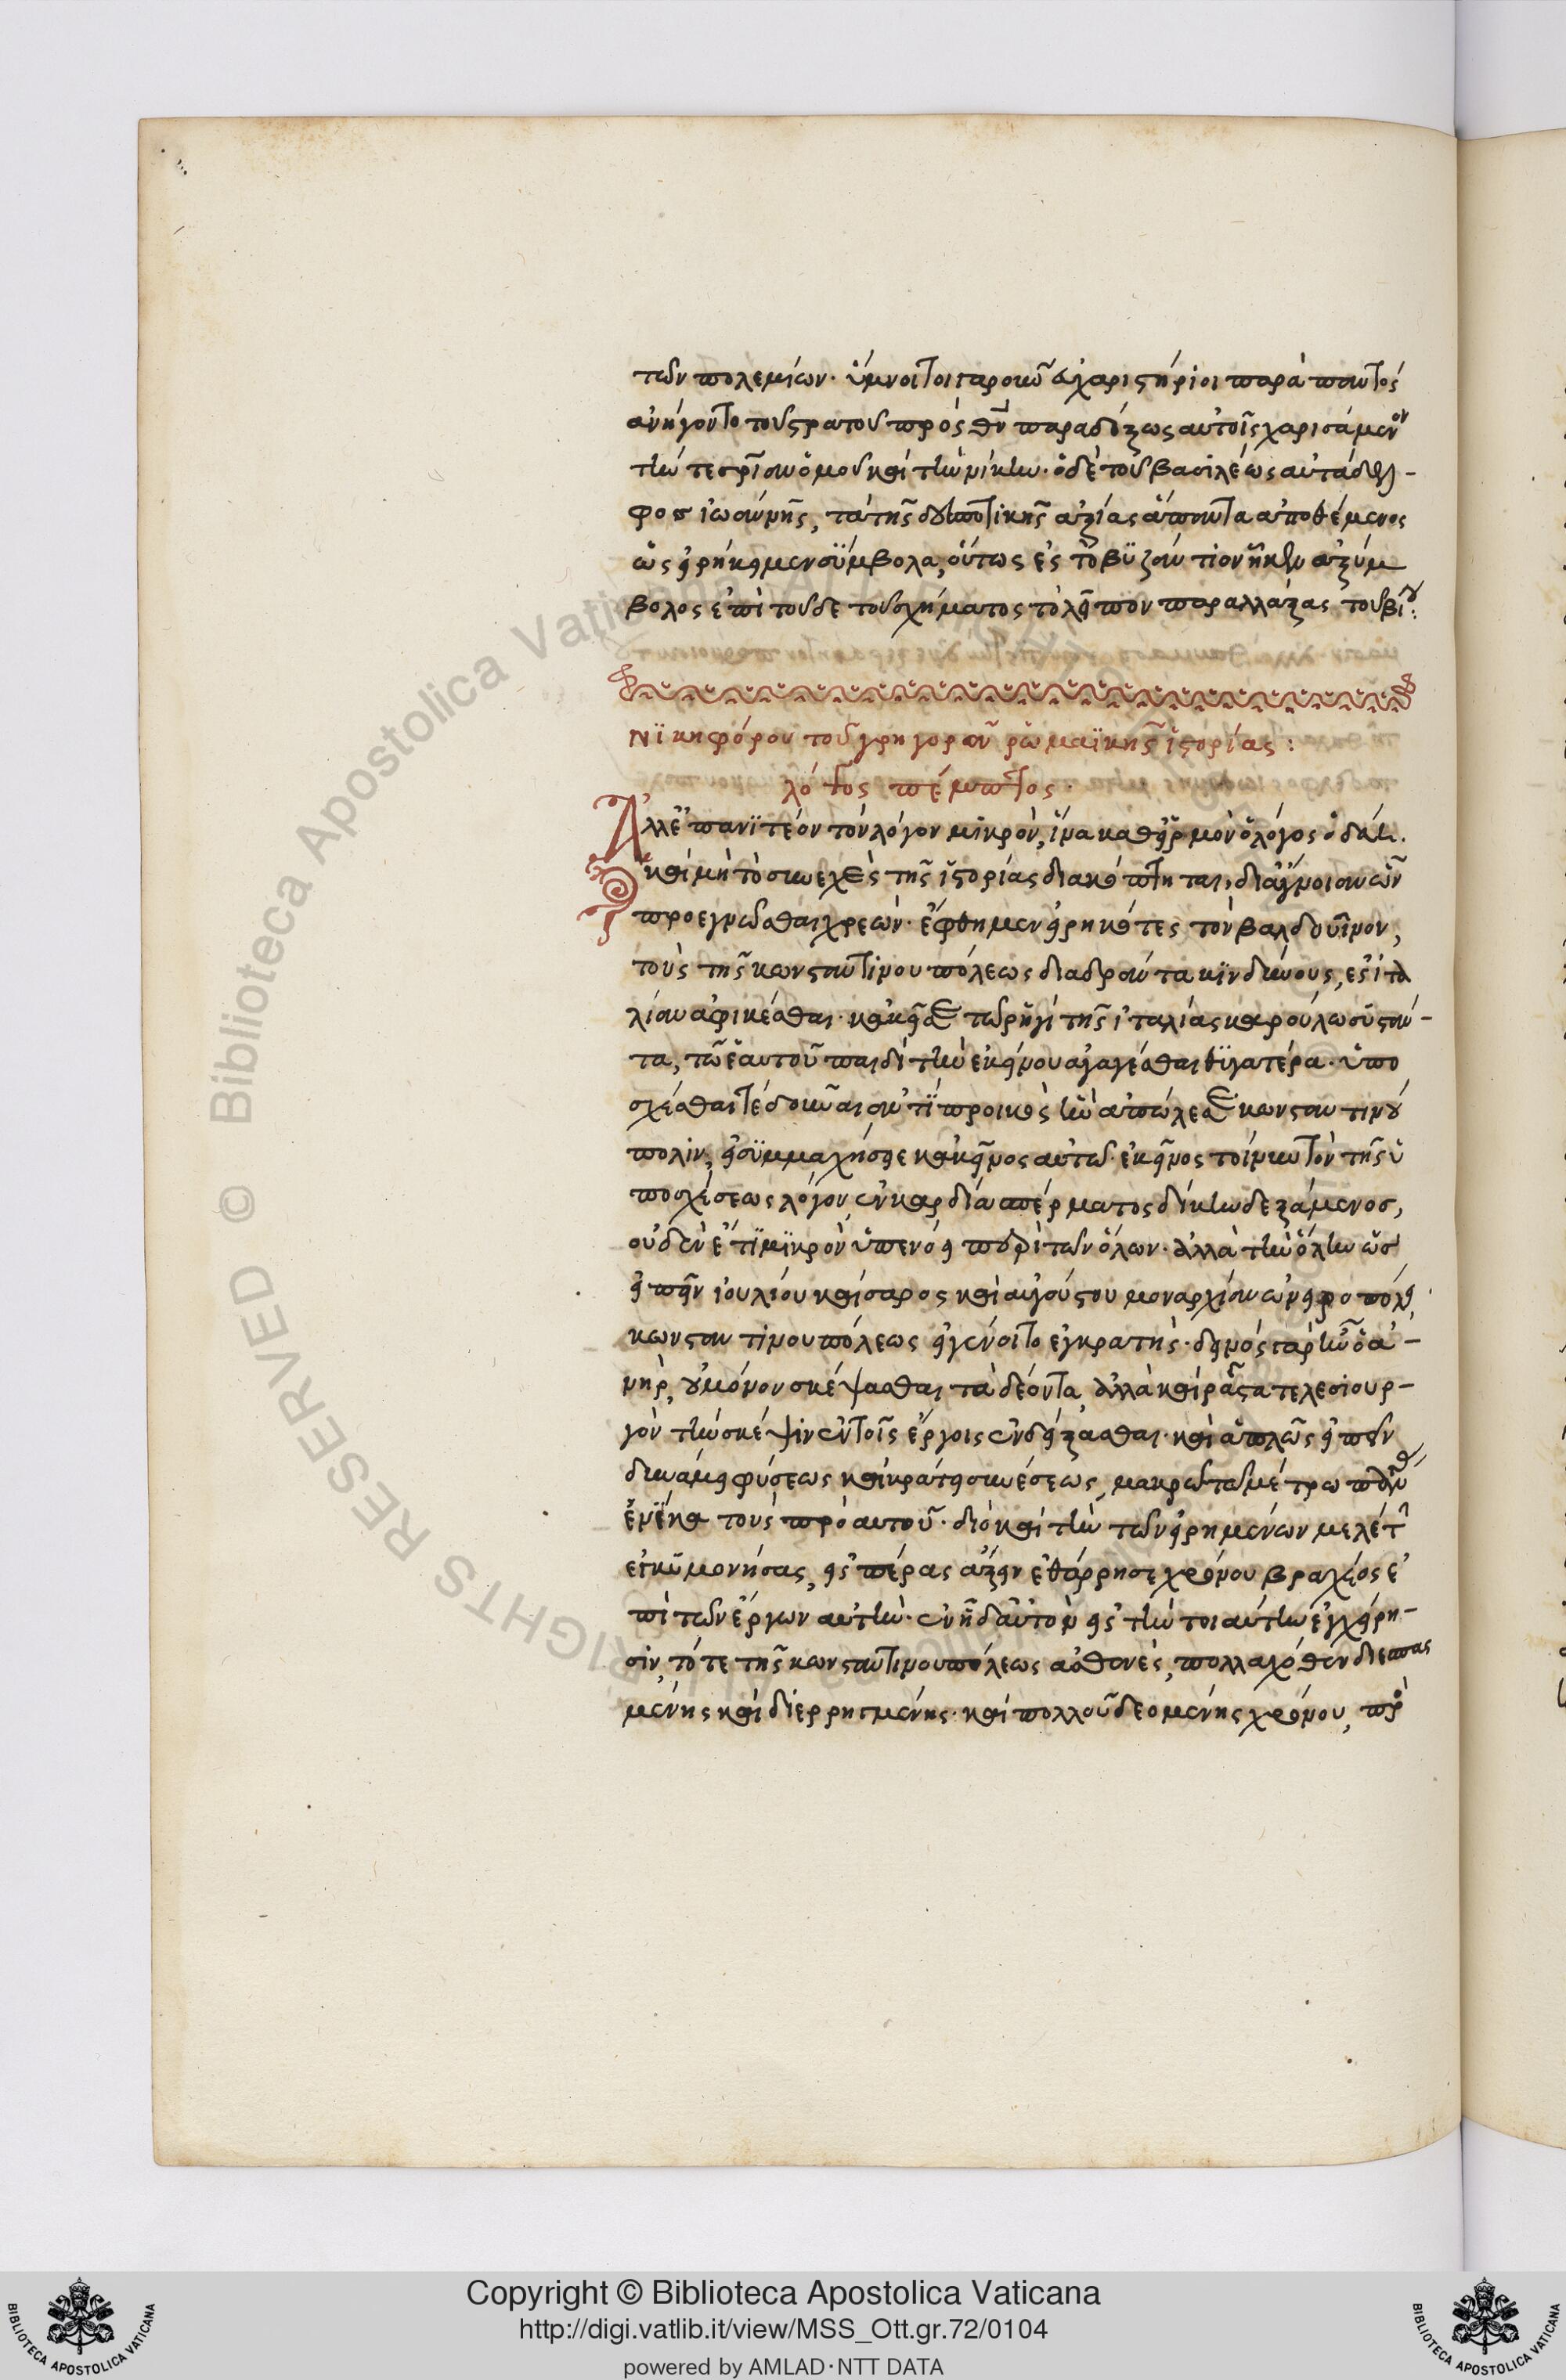 των πολεμίων. ὕμνοι τοιγαροῦν εὐχαριστήριοι παρὰ παντὸς
ἀνήγοντο τοῦ στρατοῦ πρὸς θν παραδόξως αὐτοῖς χαρισάμενον
τὴν
φος ἰωάννης, τὰ τῆς δεσποτικῆς ἀξίας ἅπαντα ἀποθέμενος
ὡς εἰρήκειμεν σύμβολα, οὕτως ἐς τὸ βυζάντιον ἧκεν ἀξύμ
βολος ἐπὶ τοῦδε τοῦ σχήματος τὸ λεῖπον παραλλάξας τοῦ βίου:
Νικηφόρου τοῦ γρηγορᾶ ῥωμαϊκῆς ἱστορίας:
λόγος πέμπτος.
Ἀλλ' ἐπανιτέον τὸν λόγον μικρὸν, ἵνα καθ' εἱρμὸν ὁ λόγος ὁδεύῃ.
καὶ μὴ τὸ συνεχὲς τῆς ἱστορίας διακόπτηται, δι' ἄγνοιαν ὧν
προεγνῶσθαι χρεών. ἔφθημεν εἰρηκότες τὸν βαλδουῖνον,
τοὺς τῆς κωνσταντίνου πόλεως διαδράντα κινδύνους, ἐς ἰτα
λίαν ἀφικέσθαι. κἀκεῖσε τῷ ῥηγὶ τῆς ἰταλίας καρούλῳ συστάν-
τα, τῷ ἑαυτοῦ παιδὶ τὴν ἐκείνου ἀγαγέσθαι θυγατέρα. ὑπο
σχέσθαι τε δοῦναι ἀντὶ προικὸς ἣν ἀπώλεσε κωνσταντίνου
πόλιν, εἰ συμμαχήσειε κἀκεῖνος αὐτῷ. ἐκεῖνος τοίνυν τὸν τῆς ὑ
ποσχέσεως λόγον ἐν καρδίᾳ σπέρματος δίκην δεξάμενος,
οὐδὲν ἔτι μικρὸν ὑπενόει περὶ τῶν ὅλων. ἀλλὰ τὴν ὅλην ὡς
εἰπεῖν ἰουλίου καίσαρος καὶ αὐγούστου μοναρχίαν ὠνειροπόλει,
κωνσταντίνου πόλεως εἰ γένοιτο ἐγκρατής. δεινὸς γὰρ ἦν ὁ ἀ-
νὴρ, οὐ μόνον σκέψασθαι τὰ δέοντα, ἀλλὰ καὶ ῥᾷστα τελεσιουρ-
γὸν τὴν σκέψιν ἐν τοῖς ἔργοις ἐνδείξασθαι. καὶ ἁπλῶς εἰπεῖν
δυνάμει φύσεως καὶ κράτει συνέσεως, μακρῷ τῷ μέτρῳ
ἐνίκα τοὺς πρὸ αὐτοῦ. διὸ καὶ τὴν τῶν εἰρημένων μελέτην
ἐγκυμονήσας, εἰς πέρας ἄξειν ἐθάρρησε χρόνου βραχέος ἐ
πὶ τῶν ἔργων αὐτήν. ἐνῆγε δ' αὐτὸν εἰς τὴν τοιαύτην ἐγχείρη-
σιν, τό τε τῆς κωνσταντίνου πόλεως ἀσθενὲς, πολλαχόθεν διεσπασ
μένης καὶ διερρηγμένης. καὶ πολλοῦ δεομένης χρόνου, πρὸ